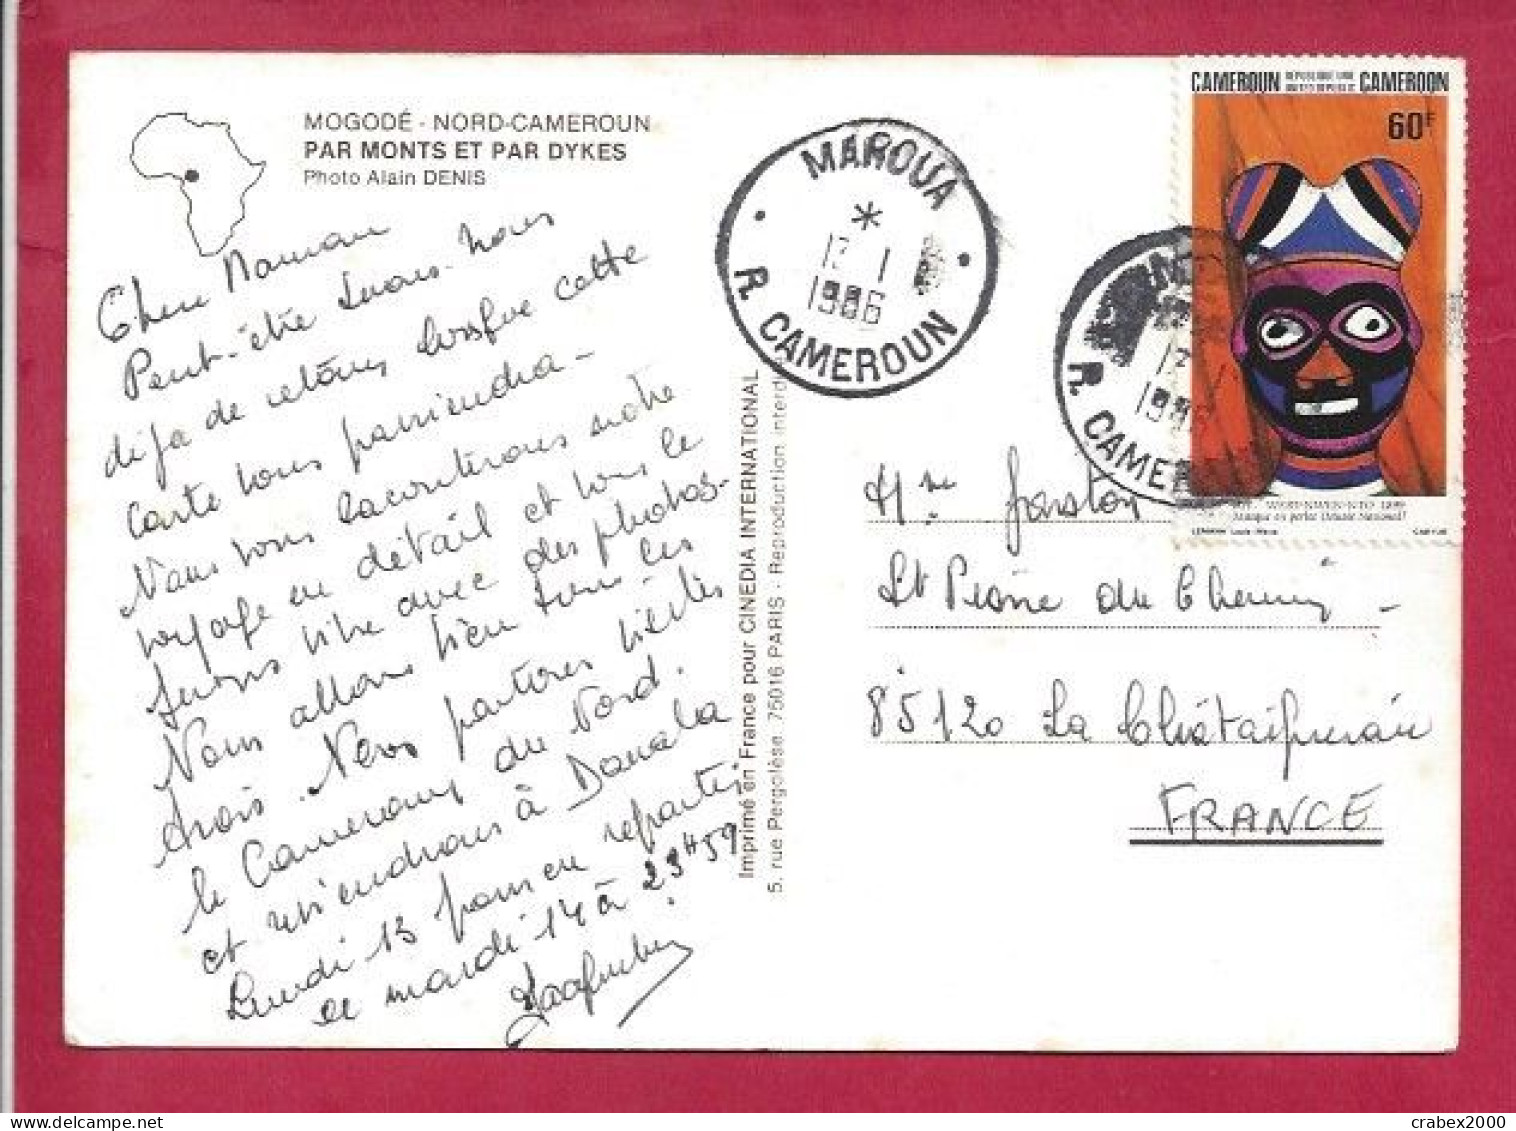 MOGODÉ - NORD-CAMEROUN
PAR MONTS ET PAR DYKES
Photo Alain DENIS
Cher Maman
Peut-être serons-nous
déja de retour lorsque cette
carte vous parviendra -
Nous vous raconterons notre
voyage en détail et vous le
ferons vivre avec des photos.
Nous allons bien tous les
trois. Nous partons visiter
le Cameroun du Nord.
et reviendrons à Douala
Lundi 13 pour en repartir
le mardi 14 à 23H59.
Imprimé en France pour CINEDIA INTERNATIONAL
5, rue Pergolèse 75016 PARIS - Reproduction interdi
MAROUA
1
1986
R. CAMEROUN
R. CAMER
CAMEROUN REPUBLIQUE UNIE UNITED REPUBLIC CAMEROON
60F
Masque en perles (Musée National)
CARTOR
Mme
St Pierre du Chemin -
85120 La Châtaigneraie
FRANCE
crabex2000